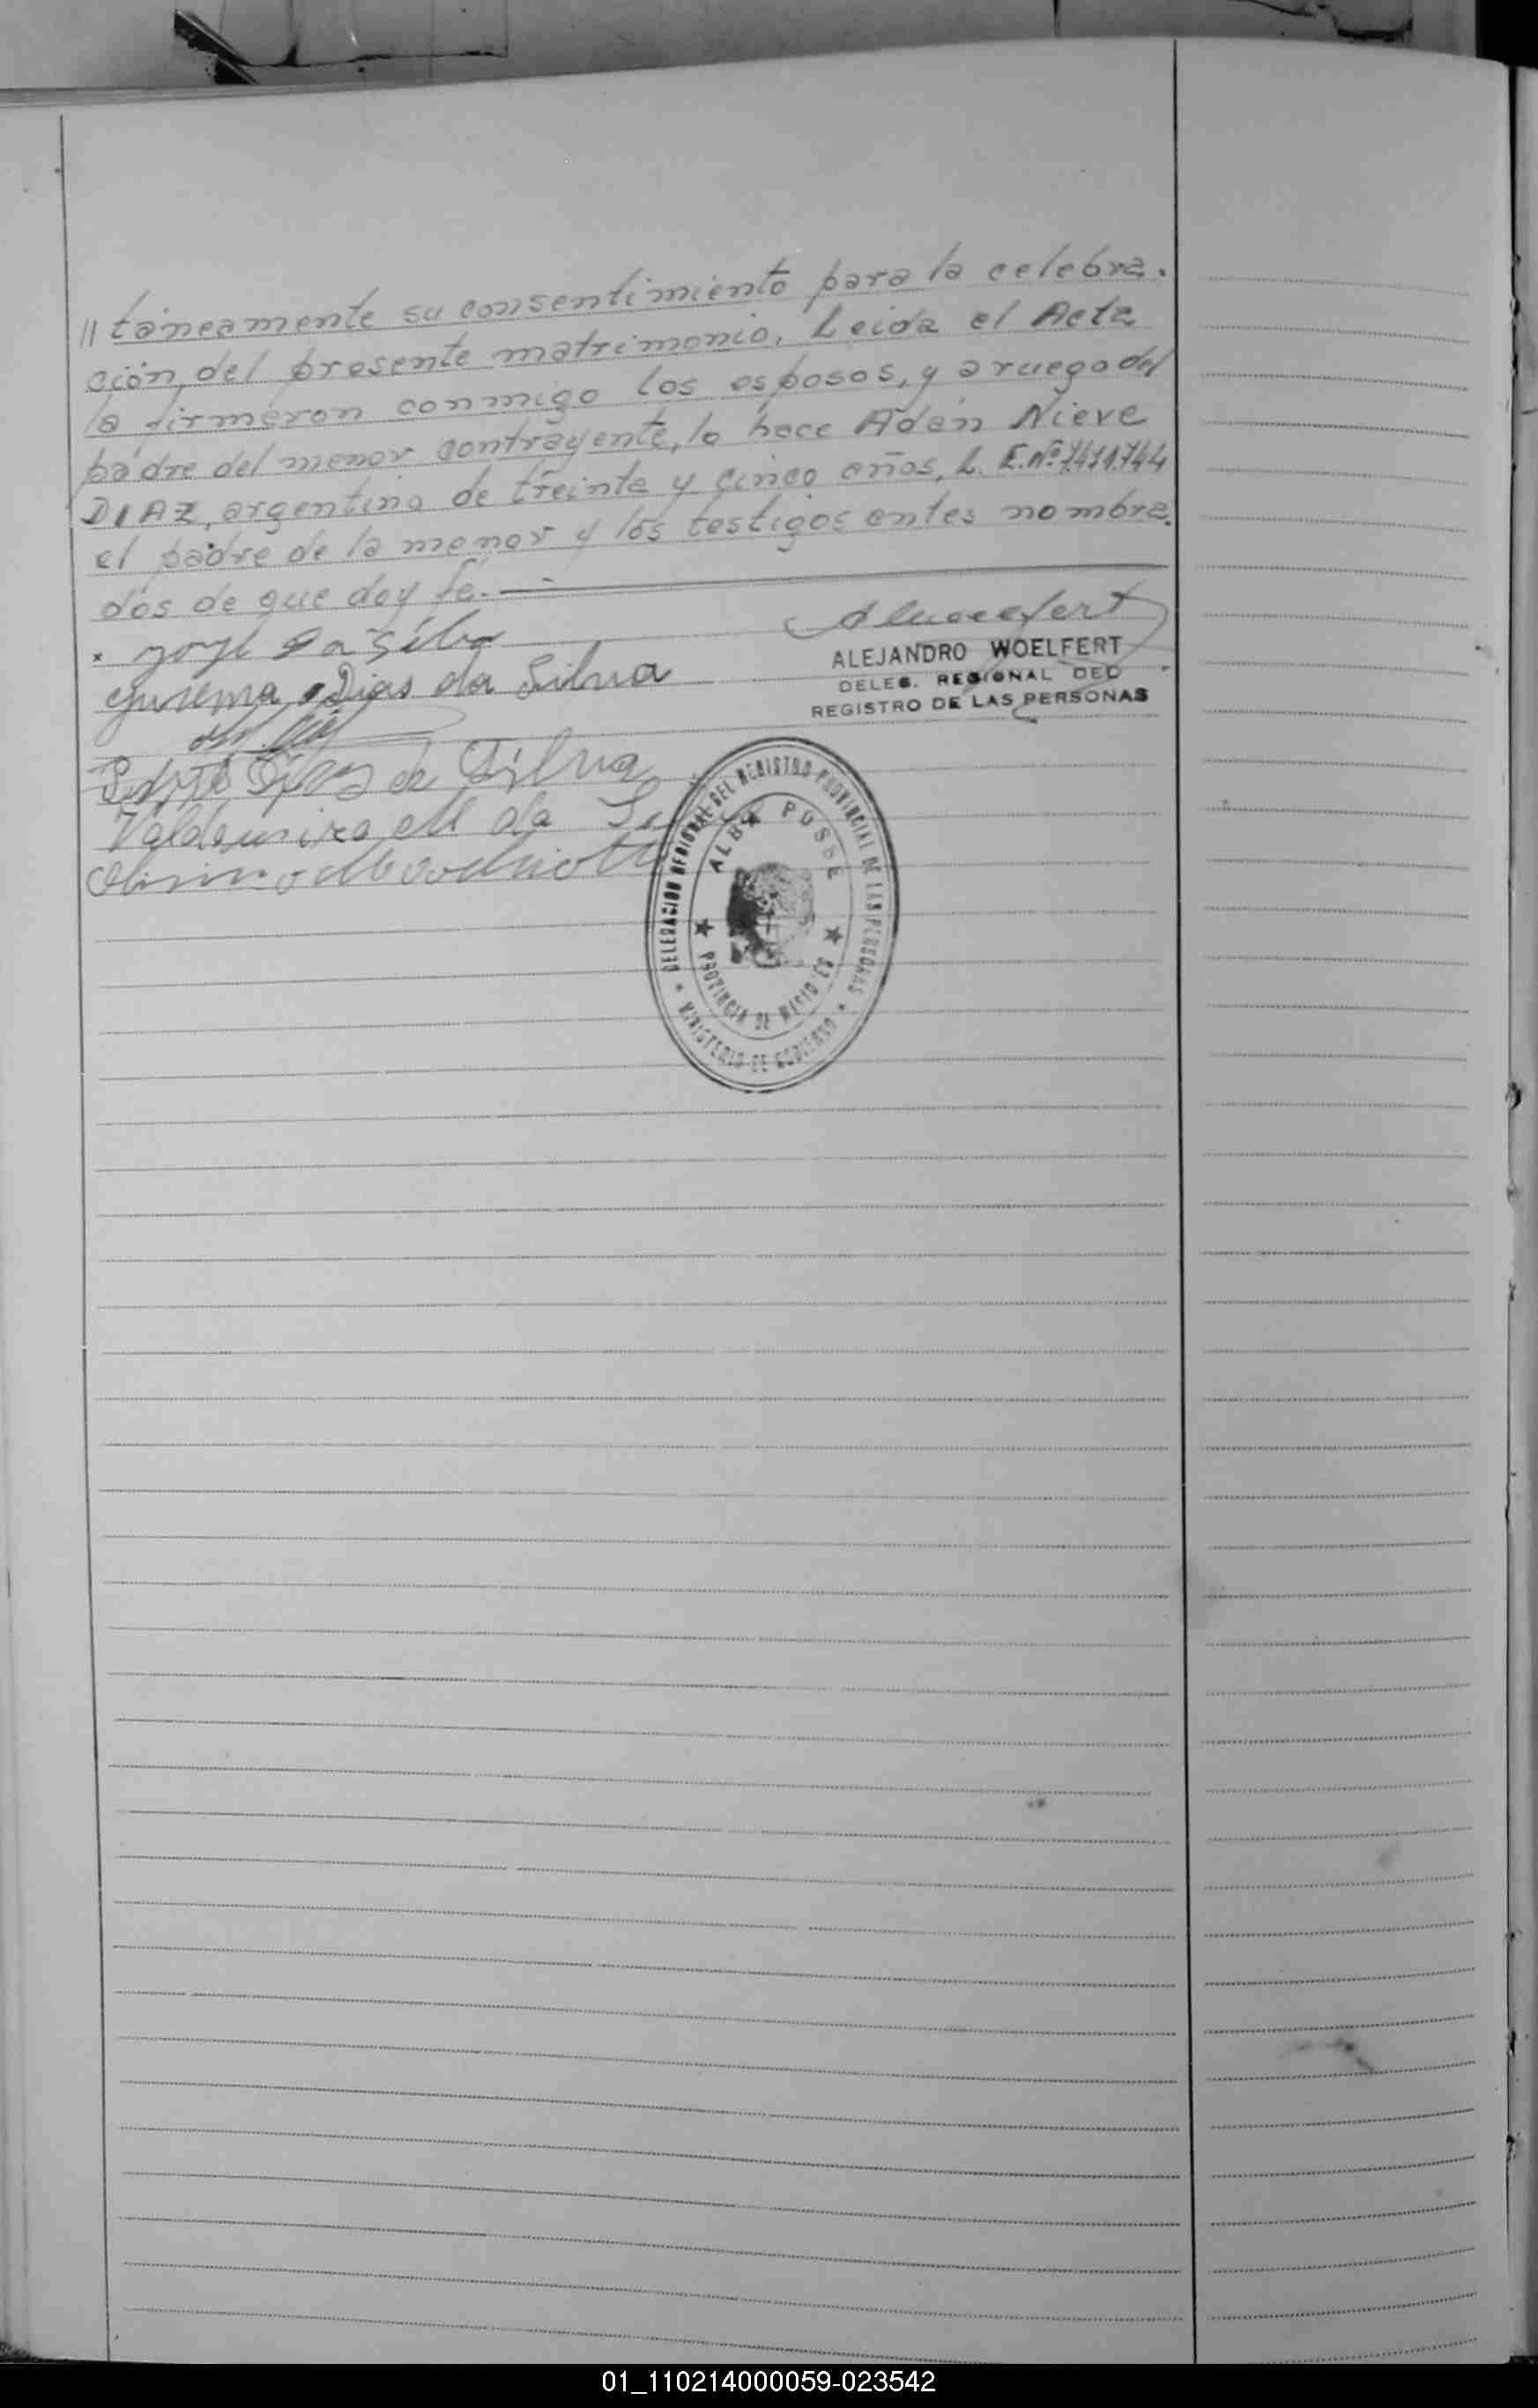 // táneamente su consentimiento para la celebra.
ción, del presente matrimonio, Leida el Acta
la firmaron conmigo los esposos, y a ruego del
padre del menor contrayente, lo hace Adán Nieve
DIAZ, argentino de treinta y cinco años, L. E. Nº 7.471.744
el padre de la menor y los testigos antes nombra.
dos de que doy fé.
A Woelfert
x Jorge da Silva
ALEJANDRO WOELFERT
Jurema Dias da Silva
DELEG. REGIONAL DEL
REGISTRO DE LAS PERSONAS
da Silva
Valdemiro M da
DELEGACION REGIONAL DEL REGISTRO PROVINCIAL DE LAS PERSONAS
ALBA POSSE
PROVINCIA DE MISIONES
MINISTERIO DE GOBIERNO
01_110214000059-023542